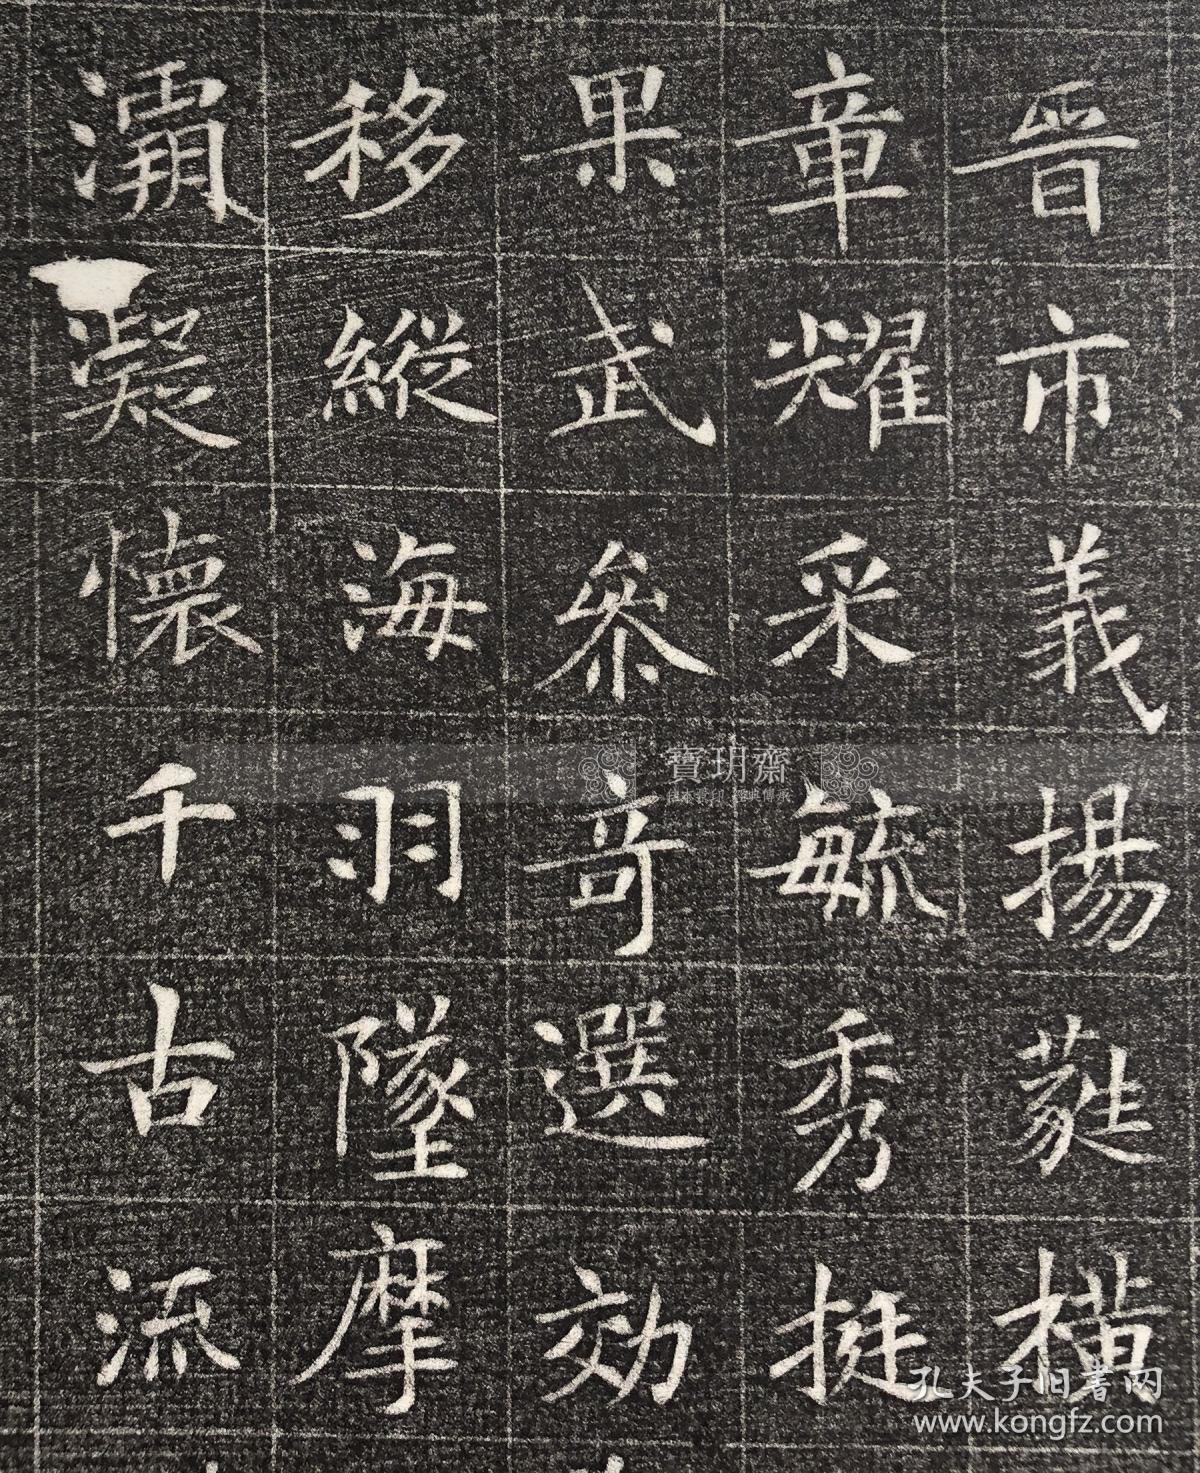 晉市義揚蕤横
章耀采毓秀挺
果武叅竒選効
移縱海羽墜摩
灞凝懷千古流
寶玥齋
孔夫子旧书网
www.kongfz.com